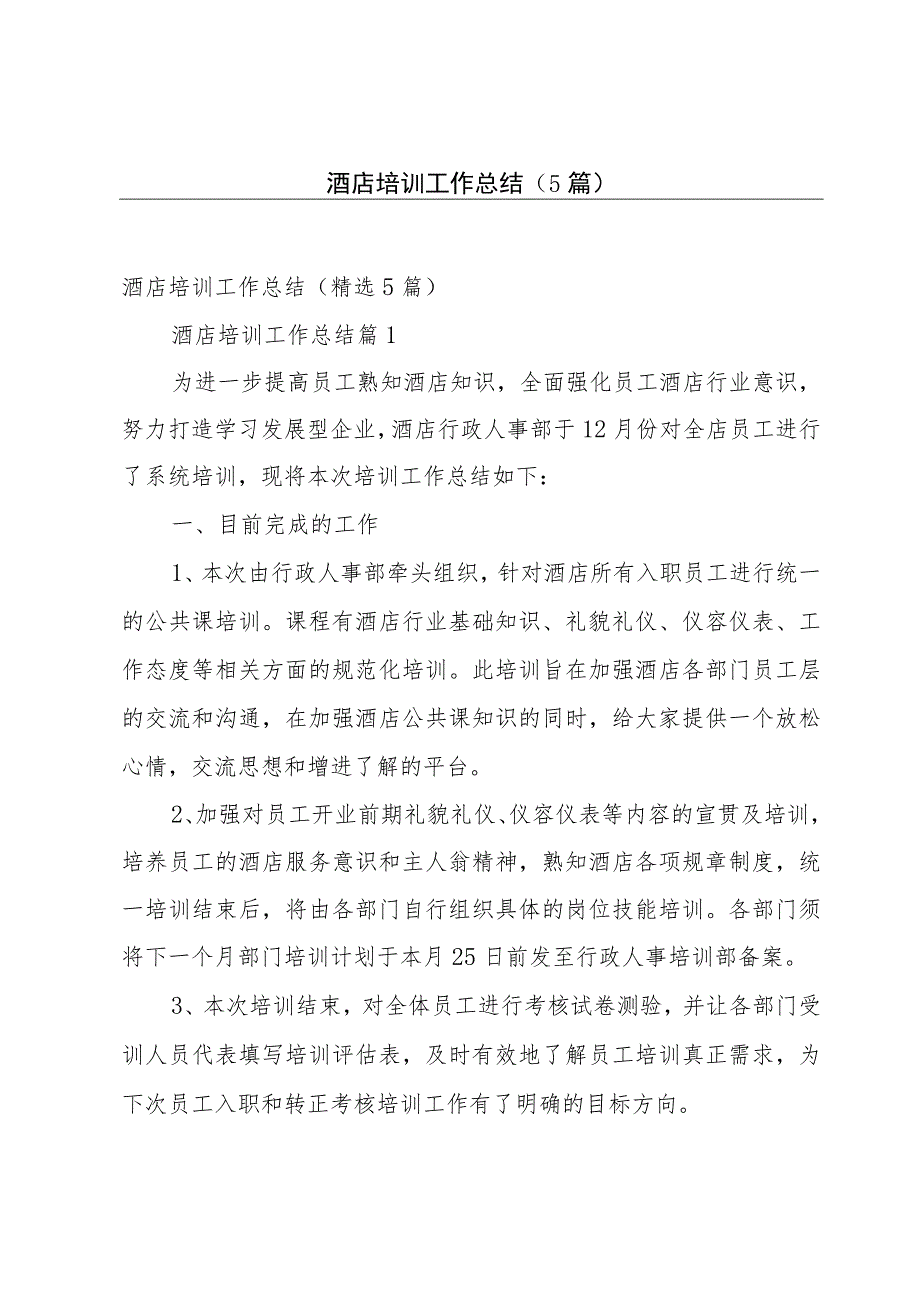 酒店培训工作总结（5篇）
酒店培训工作总结（精选5篇）
酒店培训工作总结篇1
为进一步提高员工熟知酒店知识，全面强化员工酒店行业意识，
努力打造学习发展型企业，酒店行政人事部于12月份对全店员工进行
了系统培训，现将本次培训工作总结如下：
一、目前完成的工作
1、本次由行政人事部牵头组织，针对酒店所有入职员工进行统一
的公共课培训。课程有酒店行业基础知识、礼貌礼仪、仪容仪表、工
作态度等相关方面的规范化培训。此培训旨在加强酒店各部门员工层
的交流和沟通，在加强酒店公共课知识的同时，给大家提供一个放松
心情，交流思想和增进了解的平台。
2、加强对员工开业前期礼貌礼仪、仪容仪表等内容的宣贯及培训，
培养员工的酒店服务意识和主人翁精神，熟知酒店各项规章制度，统
一培训结束后，将由各部门自行组织具体的岗位技能培训。各部门须
将下一个月部门培训计划于本月25日前发至行政人事培训部备案。
3、本次培训结束，对全体员工进行考核试卷测验，并让各部门受
训人员代表填写培训评估表，及时有效地了解员工培训真正需求，为
下次员工入职和转正考核培训工作有了明确的目标方向。